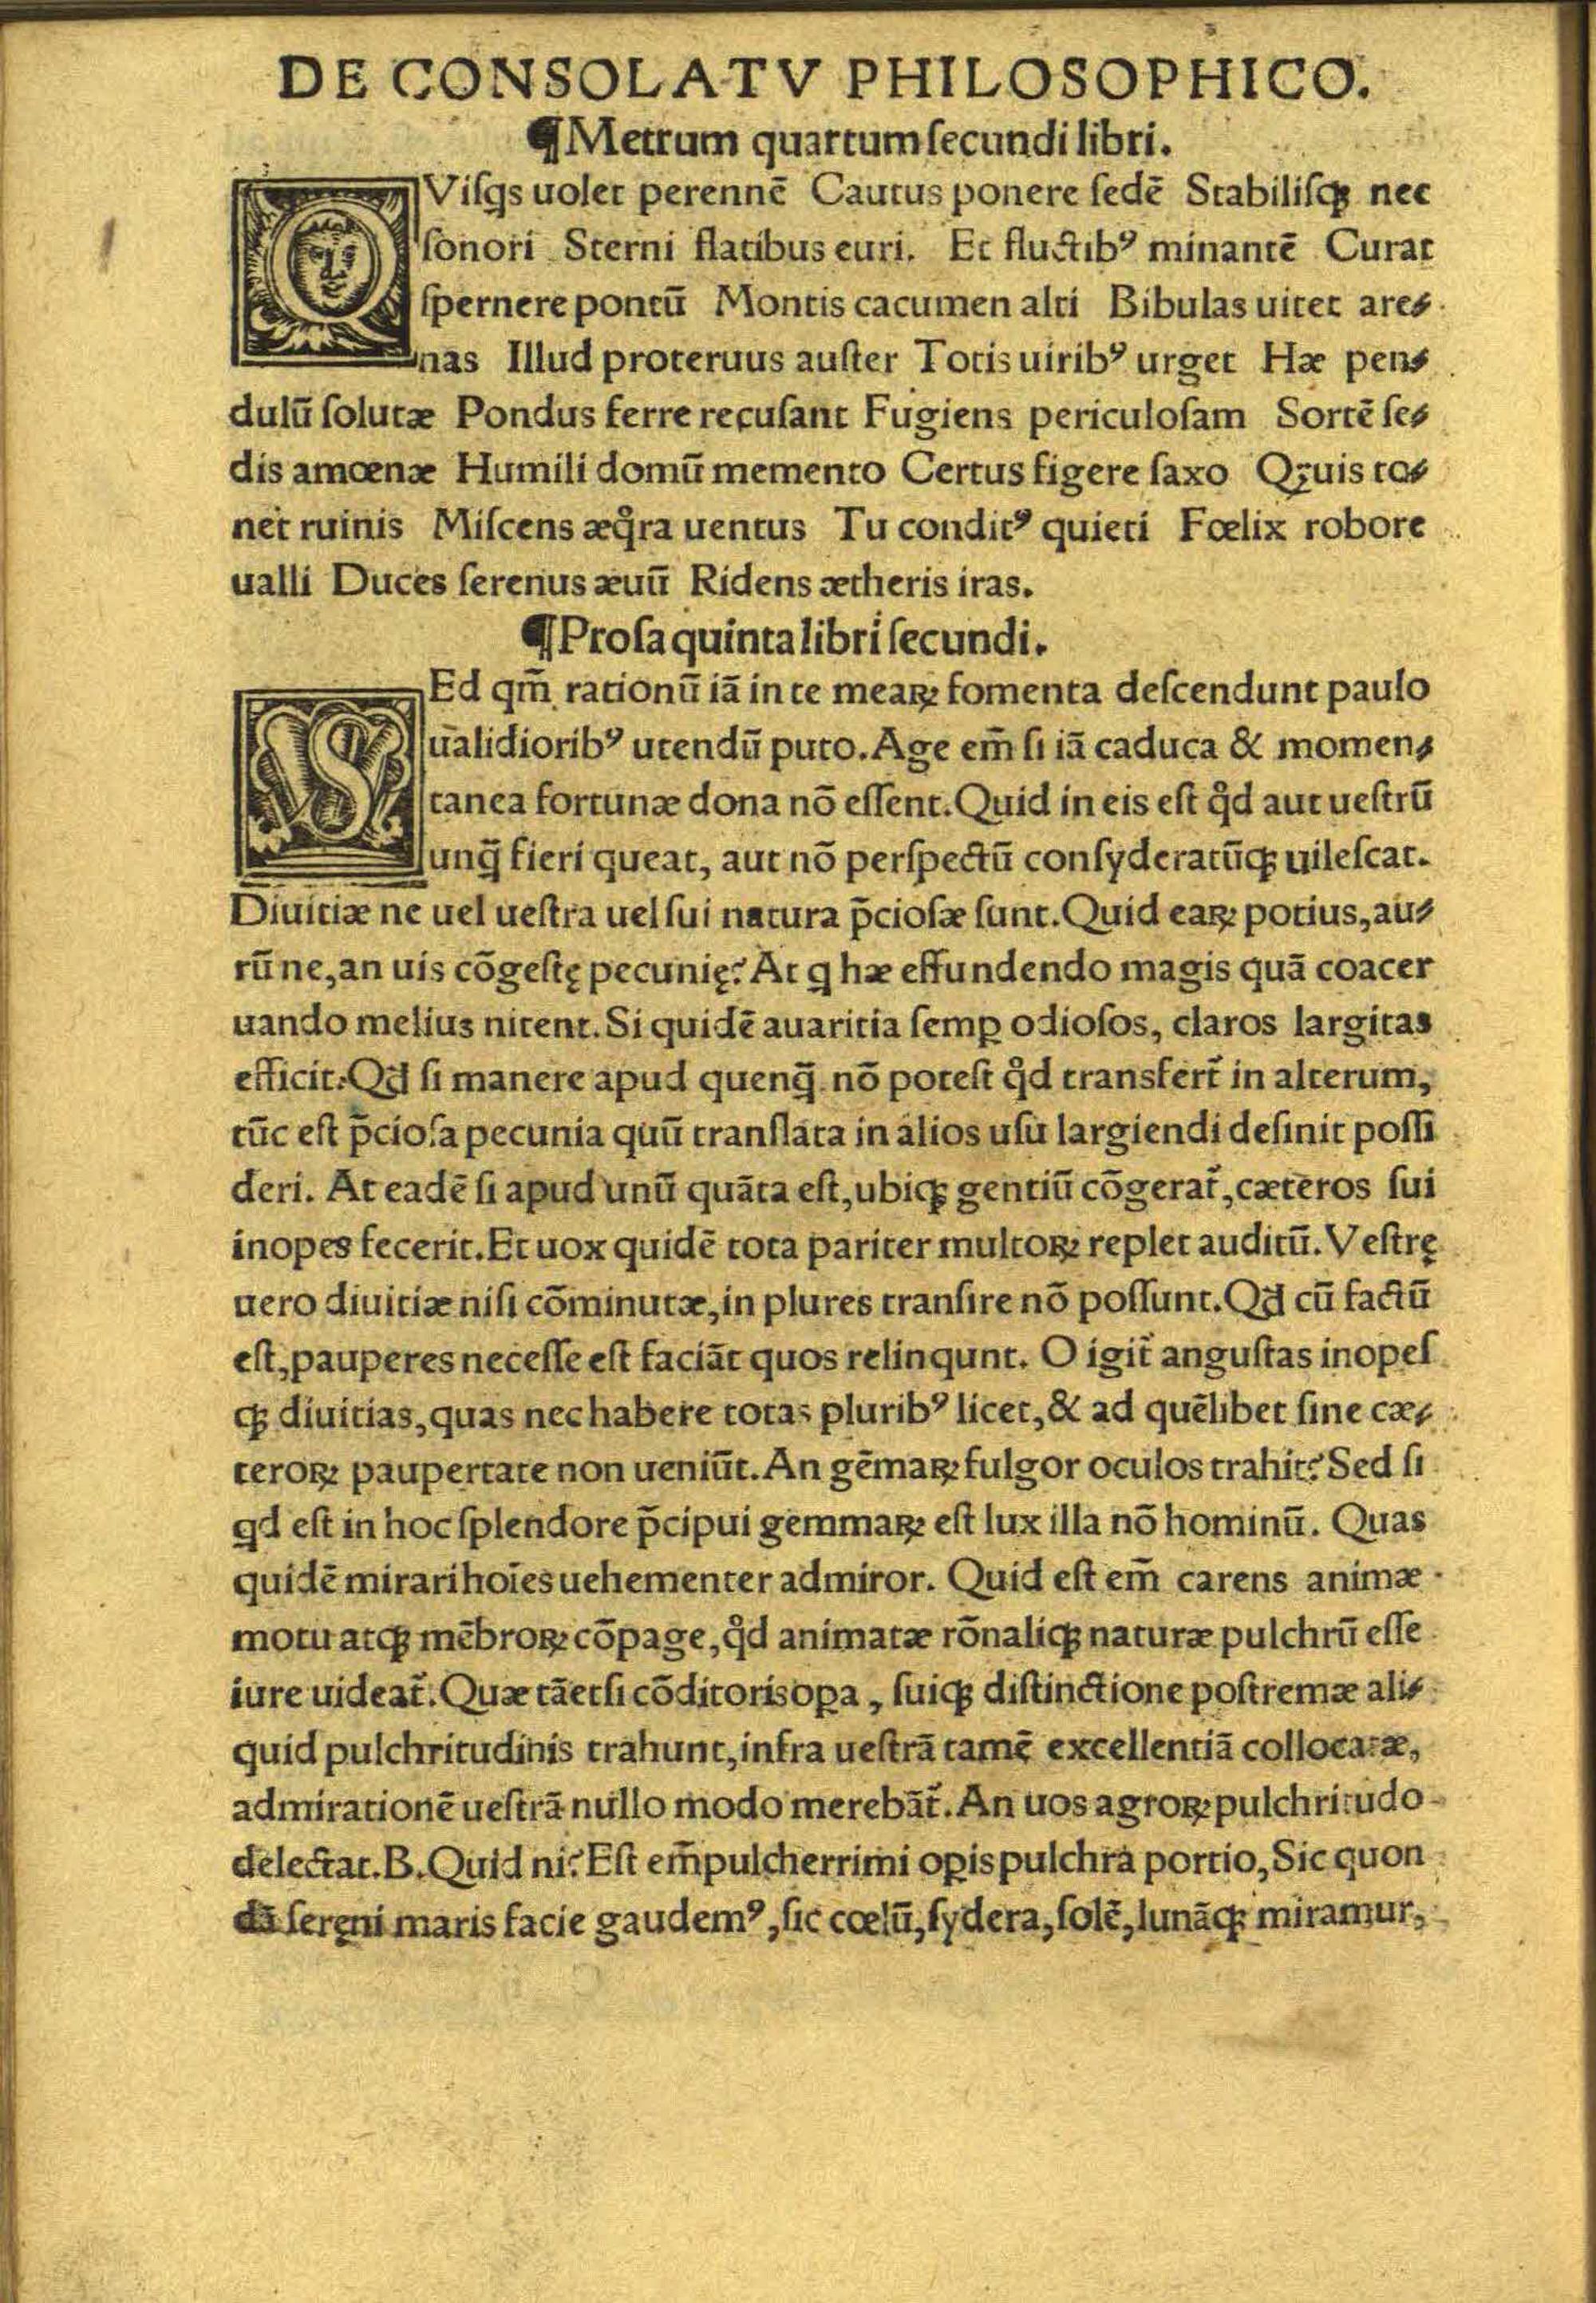 DE CONSOLATV PHILOSOPHICO.
¶Metrum quartum ſecundi libri.
QViſqs uolet perennē Cautus ponere ſedē Stabiliſqꝫ nec
ſonori Sterni flatibus euri. Et fluctibꝰ minantē Curat
ſpernere pontū Montis cacumen alti Bibulas uitet are⸗
nas Illud proteruus auſter Totis uiribꝰ urget Hæ pen⸗
dulū ſolutæ Pondus ferre recuſant Fugiens periculoſam Sortē ſe⸗
dis amœnæ Humili domū memento Certus figere ſaxo Qꝫuis to⸗
net ruinis Miſcens æqͦra uentus Tu conditꝰ quieti Fœlix robore
ualli Duces ſerenus æuū Ridens ætheris iras.
¶Proſa quinta libri ſecundi.
SEd qm̄ rationū iā in te meaꝝ fomenta deſcendunt paulo
ualidioribꝰ utendū puto. Age em̄ ſi iā caduca & momen⸗
tanea fortunæ dona nō eſſent. Quid in eis eſt qͦd aut ueſtrū
unq̄ fieri queat, aut nō perſpectū conſyderatūqꝫ uileſcat.
Diuitiæ ne uel ueſtra uel ſui natura p̄cioſæ ſunt. Quid eaꝝ potius, au⸗
rū ne, an uis cōgeſtę pecunię? At q hæ effundendo magis quā coacer
uando melius nitent. Si quidē auaritia ſemꝑ odioſos, claros largitas
efficit. Qd̄ ſi manere apud quenq̄ nō poteſt qͦd transfert̄ in alterum,
tūc eſt p̄cioſa pecunia quū tranſlata in alios uſu largiendi deſinit poſſi
deri. At eadē ſi apud unū quāta eſt, ubiqꝫ gentiū cōgerat̄, cæteros ſui
inopes fecerit. Et uox quidē tota pariter multoꝝ replet auditū. Veſtrę
uero diuitiæ niſi cōminutæ, in plures tranſire nō poſſunt. Qd̄ cū factū
eſt, pauperes neceſſe eſt faciāt quos relinqunt. O igit̄ anguſtas inopeſ
qꝫ diuitias, quas nec habere totas pluribꝰ licet, & ad quēlibet ſine cæ⸗
teroꝝ paupertate non ueniūt. An gēmaꝝ fulgor oculos trahit? Sed ſi
qd eſt in hoc ſplendore p̄cipui gemmaꝝ eſt lux illa nō hominū. Quas
quidē mirari hoīes uehementer admiror. Quid eſt em̄ carens animæ
motu atqꝫ mēbroꝝ cōpage, qͦd animatæ rōnaliqꝫ naturæ pulchrū eſſe
iure uideat̄. Quæ tāetſi cōditoris oꝑa, ſuiqꝫ diſtinctione poſtremæ ali⸗
quid pulchritudinis trahunt, infra ueſtrā tamē excellentiā collocatæ,
admirationē ueſtrā nullo modo merebāt̄. An uos agroꝝ pulchritudo
delectat. B. Quid ni? Eſt em̄ pulcherrimi oꝑis pulchra portio, Sic quon
dā ſereni maris facie gaudemꝰ, ſic cœlū, ſydera, ſolē, lunāqꝫ miramur,